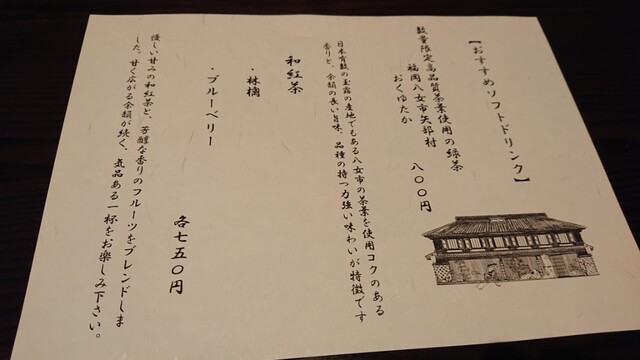 【おすすめソフトドリンク】
数量限定高品質茶葉使用の緑茶
福岡八女市矢部村
おくゆたか 八〇〇円
日本有数の玉露の産地でもある八女市の茶葉を使用コクのある
香りと、余韻の長い旨味、品種の持つ力強い味わいが特徴です
和紅茶
・林檎
・ブルーベリー
各七五〇円
優しい甘みの和紅茶と、芳醇な香りのフルーツをブレンドしま
した。甘く広がる余韻が続く、気品ある一杯をお楽しみ下さい。